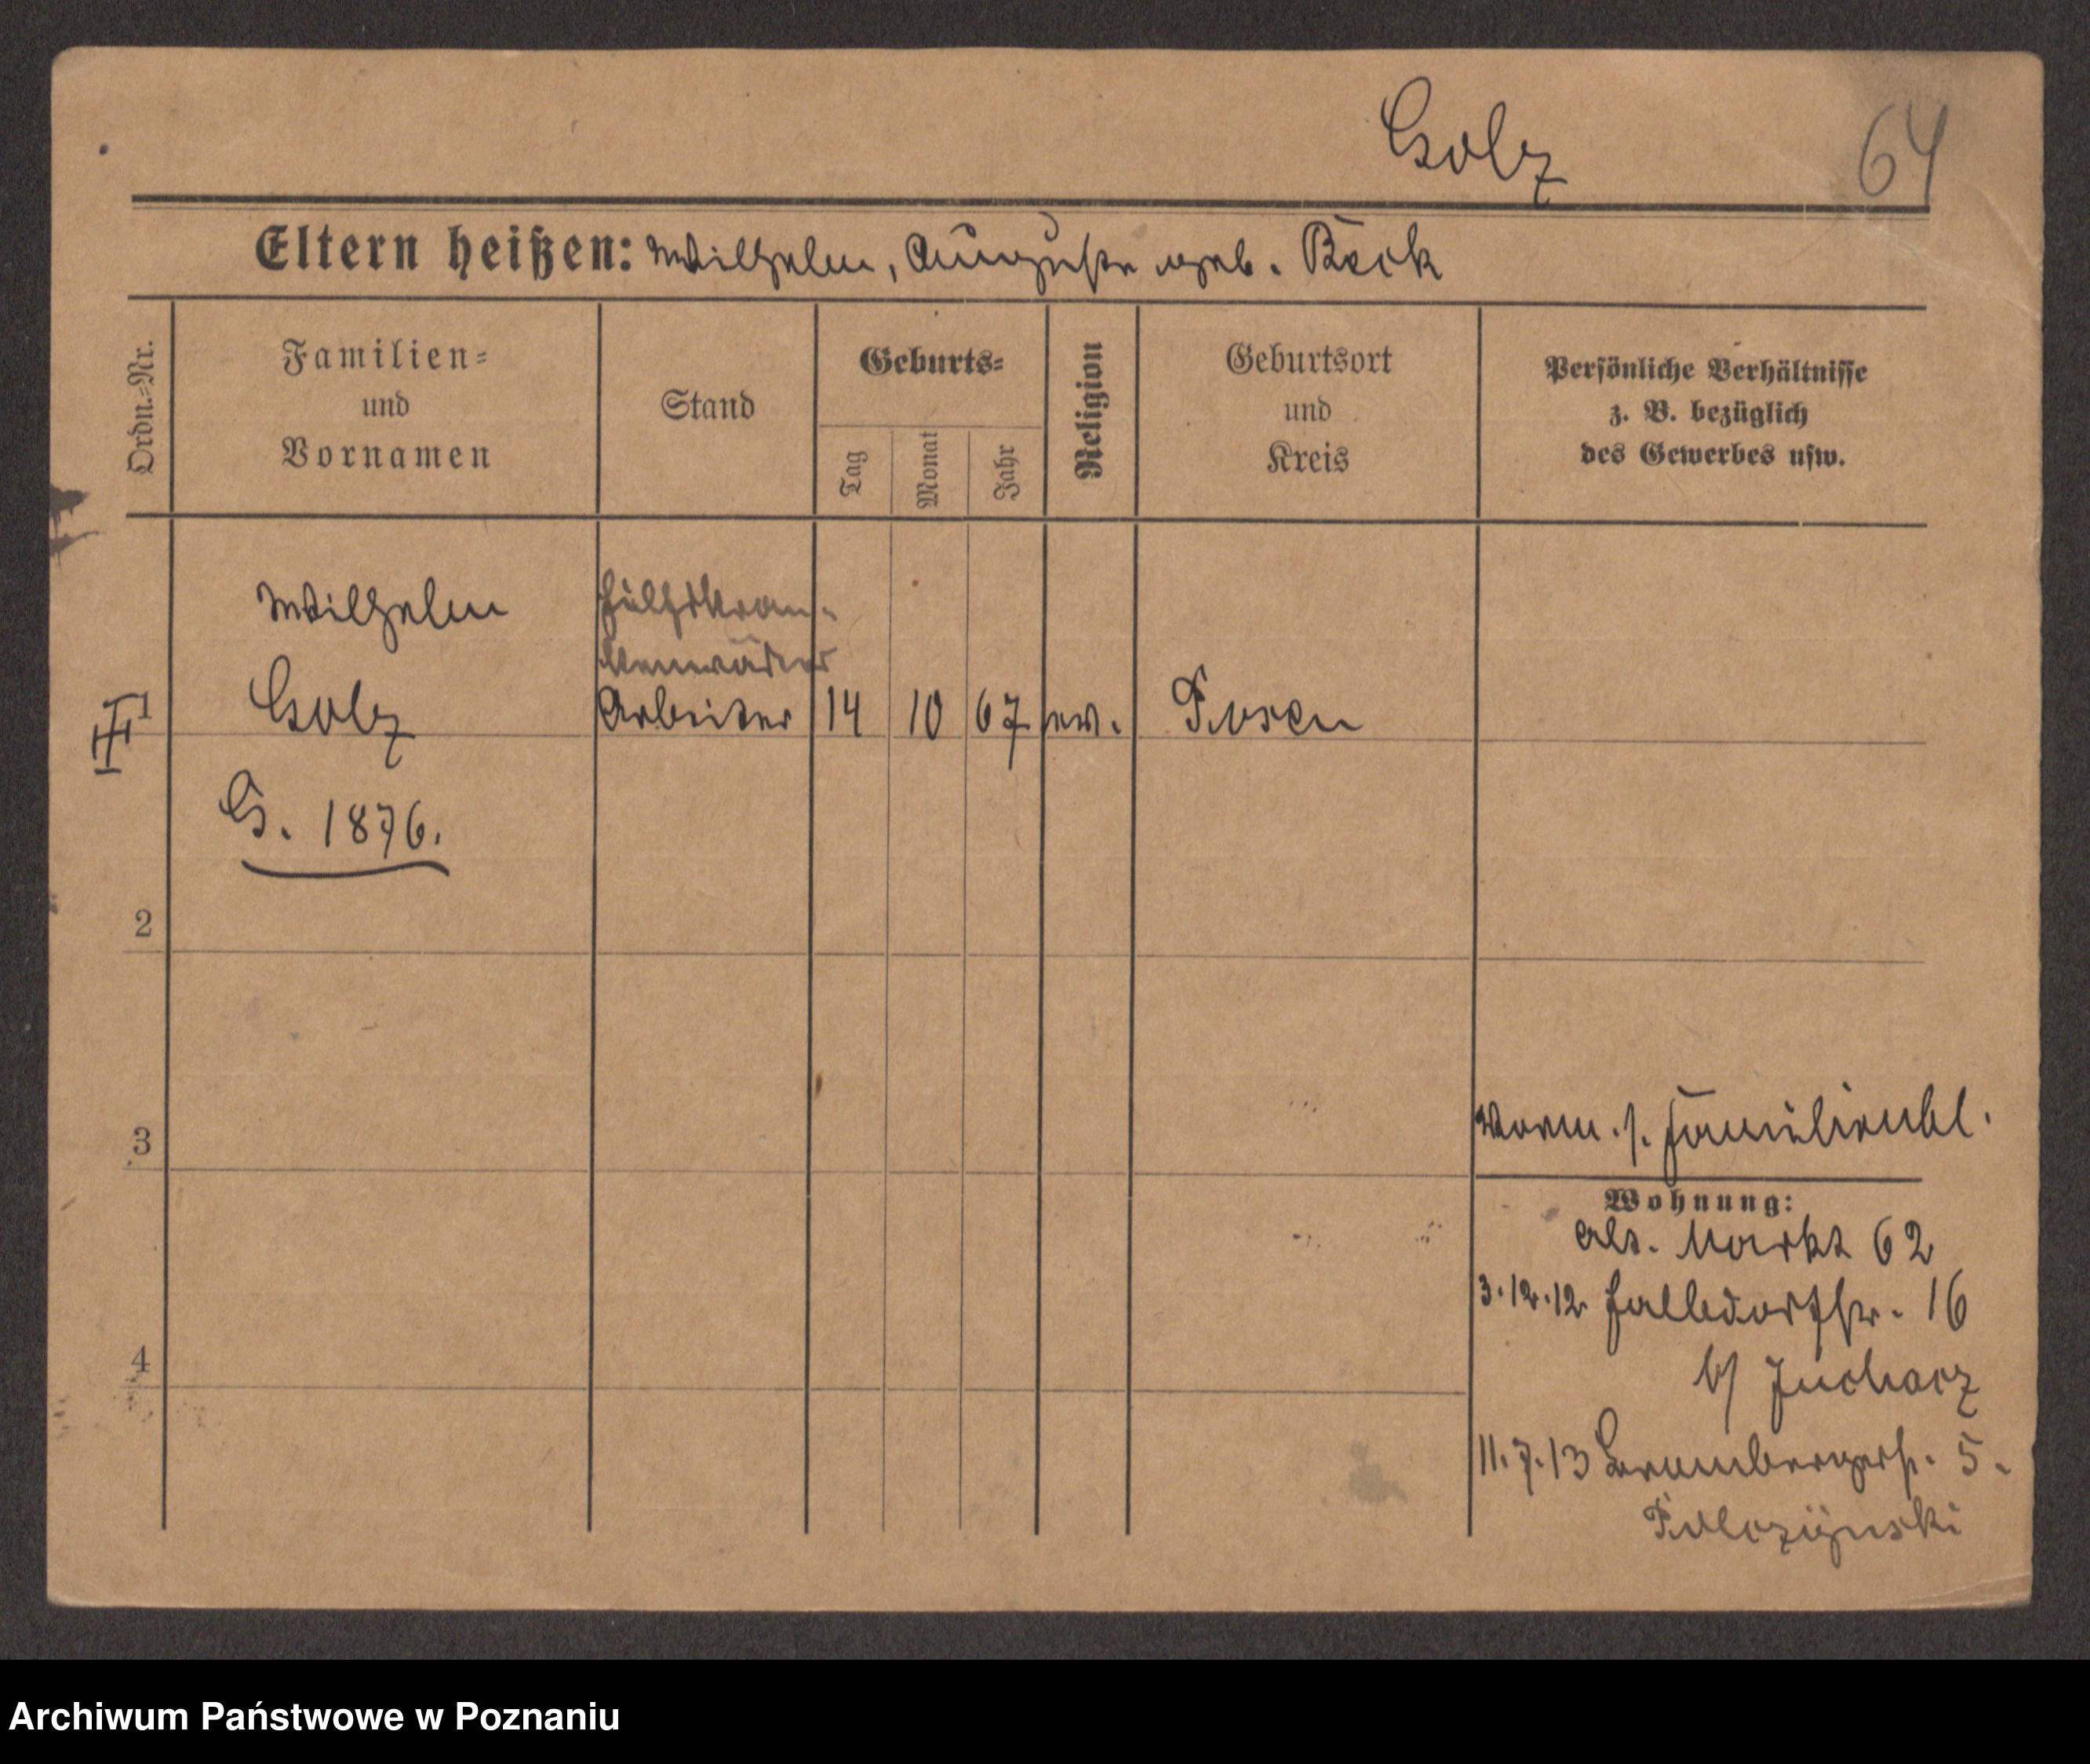 Golz 64
Eltern heißen: Wilhelm, Auguste geb. Beck
Ordn.-Nr.
Familien-
und
Vornamen
Stand
Geburts-
Tag
Monat
Jahr
Religion
Geburtsort
und
Kreis
Persönliche Verhältnisse
z. B. bezüglich
des Gewerbes usw.
Wilhelm Hülfskran-
kenwärter
1 Golz Arbeiter 14 10 67 ev. Posen
G. 1876.
2
3
Verm. s. Familienbl.
Wohnung:
Alt. Markt 62
3.12.12 Halbdorfstr. 16
b/ Juchacz
4
11.7.13 Brombergerstr. 5.
Archiwum Państwowe w Poznaniu